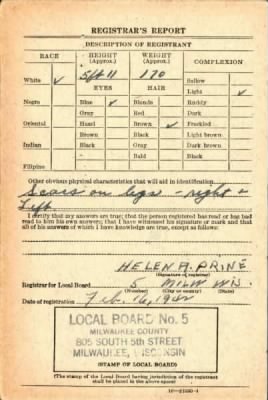 REGISTRAR'S REPORT
DESCRIPTION OF REGISTRANT
RACE HEIGHT (Approx.) WEIGHT (Approx.) COMPLEXION
White ✓ 5ft 11 170 Sallow
EYES HAIR Light ✓
Negro Blue ✓ Blonde Ruddy
Gray Red Dark
Oriental Hazel Brown ✓ Freckled
Brown Black Light brown
Indian Black Gray Dark brown
Bald Black
Filipino
Other obvious physical characteristics that will aid in identification
Scars on legs - right &
left
I certify that my answers are true; that the person registered has read or has had
read to him his own answers; that I have witnessed his signature or mark and that
all of his answers of which I have knowledge are true, except as follows:
HELEN A. PRINE
(Signature of registrar)
Registrar for Local Board 5 MILW WIS.
(Number) (City or county) (State)
Date of registration Feb. 16, 1942
LOCAL BOARD No. 5
MILWAUKEE COUNTY
805 SOUTH 5th STREET
MILWAUKEE, WISCONSIN
(STAMP OF LOCAL BOARD)
(The stamp of the Local Board having jurisdiction of the registrant
shall be placed in the above space)